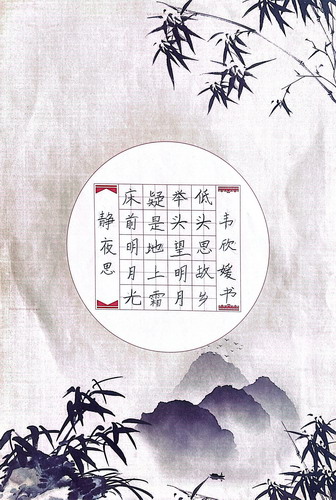 静夜思
床前明月光
疑是地上霜
举头望明月
低头思故乡
韦欣媛书